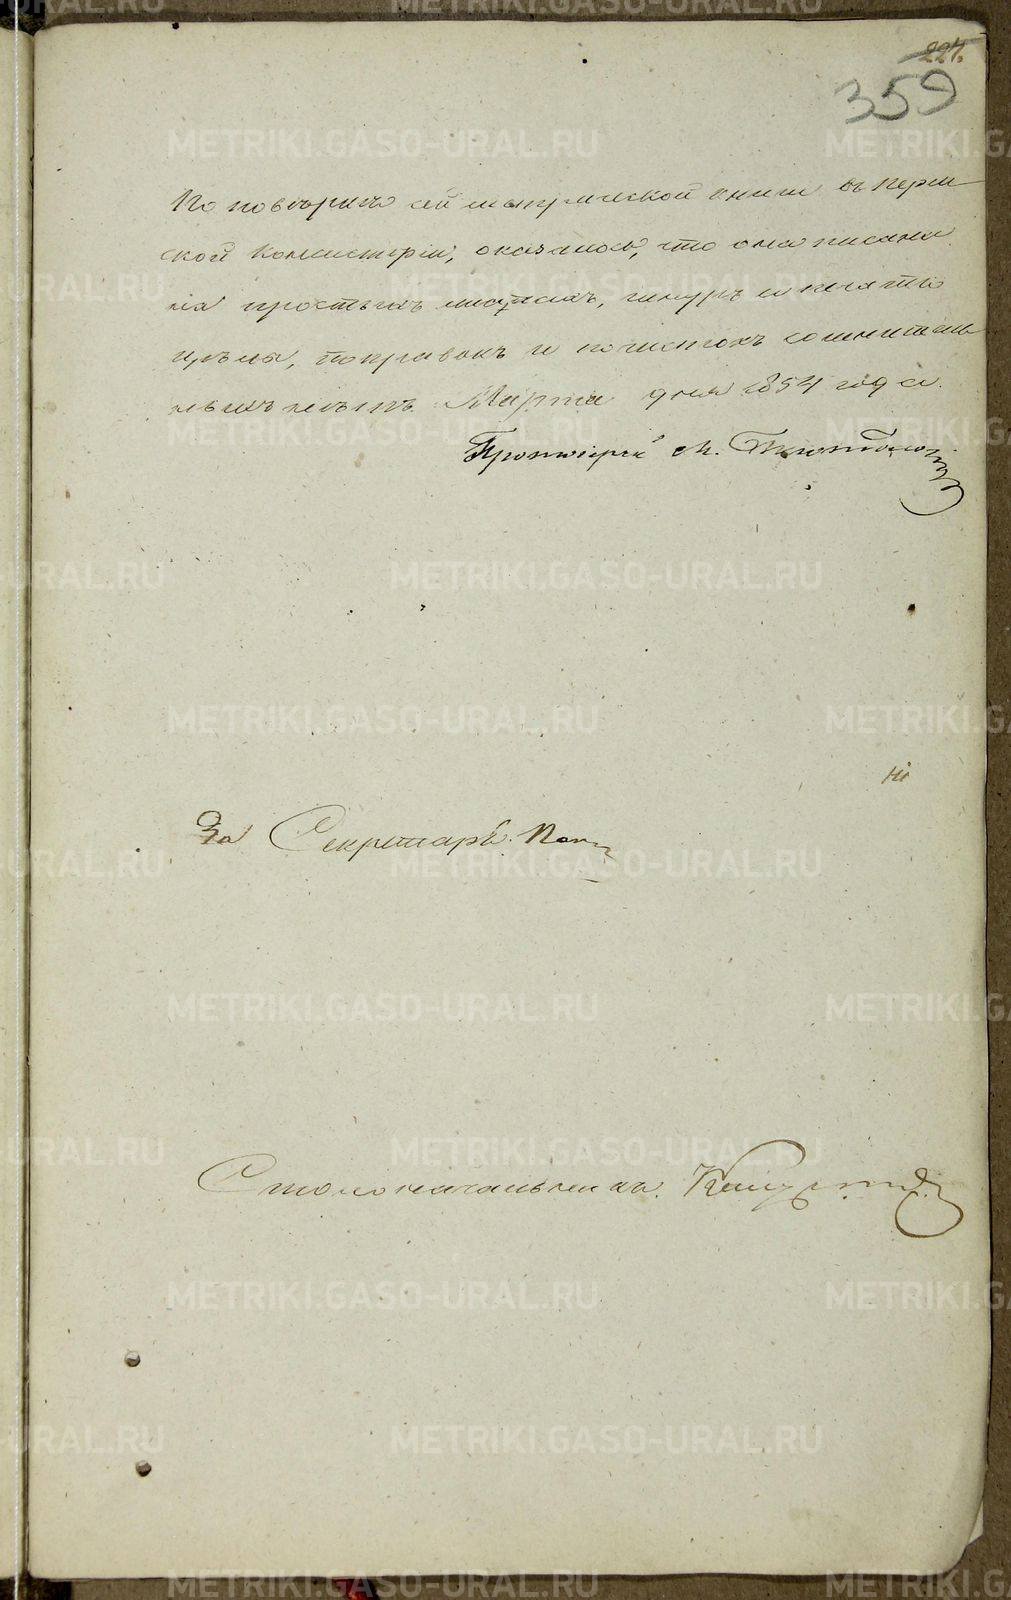 227.
359
По повѣркѣ сей метрической книги въ Перм-
ской Консисторіи, оказалось, что она писана
на простыхъ листахъ, шнуръ и печать
цѣлы, поправокъ и почистокъ сомнитель-
ныхъ нѣтъ. Марта дня 1854 года.
Протоіерей М.
За Секретаря
Столоначальникъ
METRIKI.GASO-URAL.RU